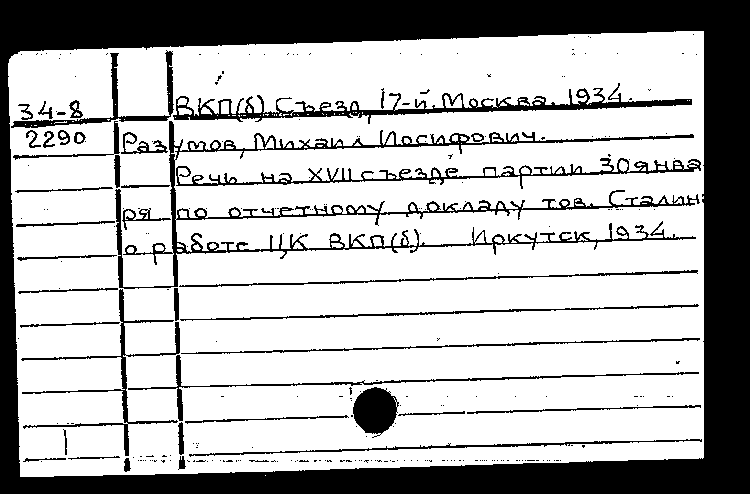 34-8 ВКП(б) Съезд, 17-й. Москва. 1934.
2290 Разумов, Михаил Иосифович.
Речь на XVII съезде партии 30 янва
ря по отчетному докладу тов. Сталина
о работе ЦК ВКП(б). Иркутск, 1934.